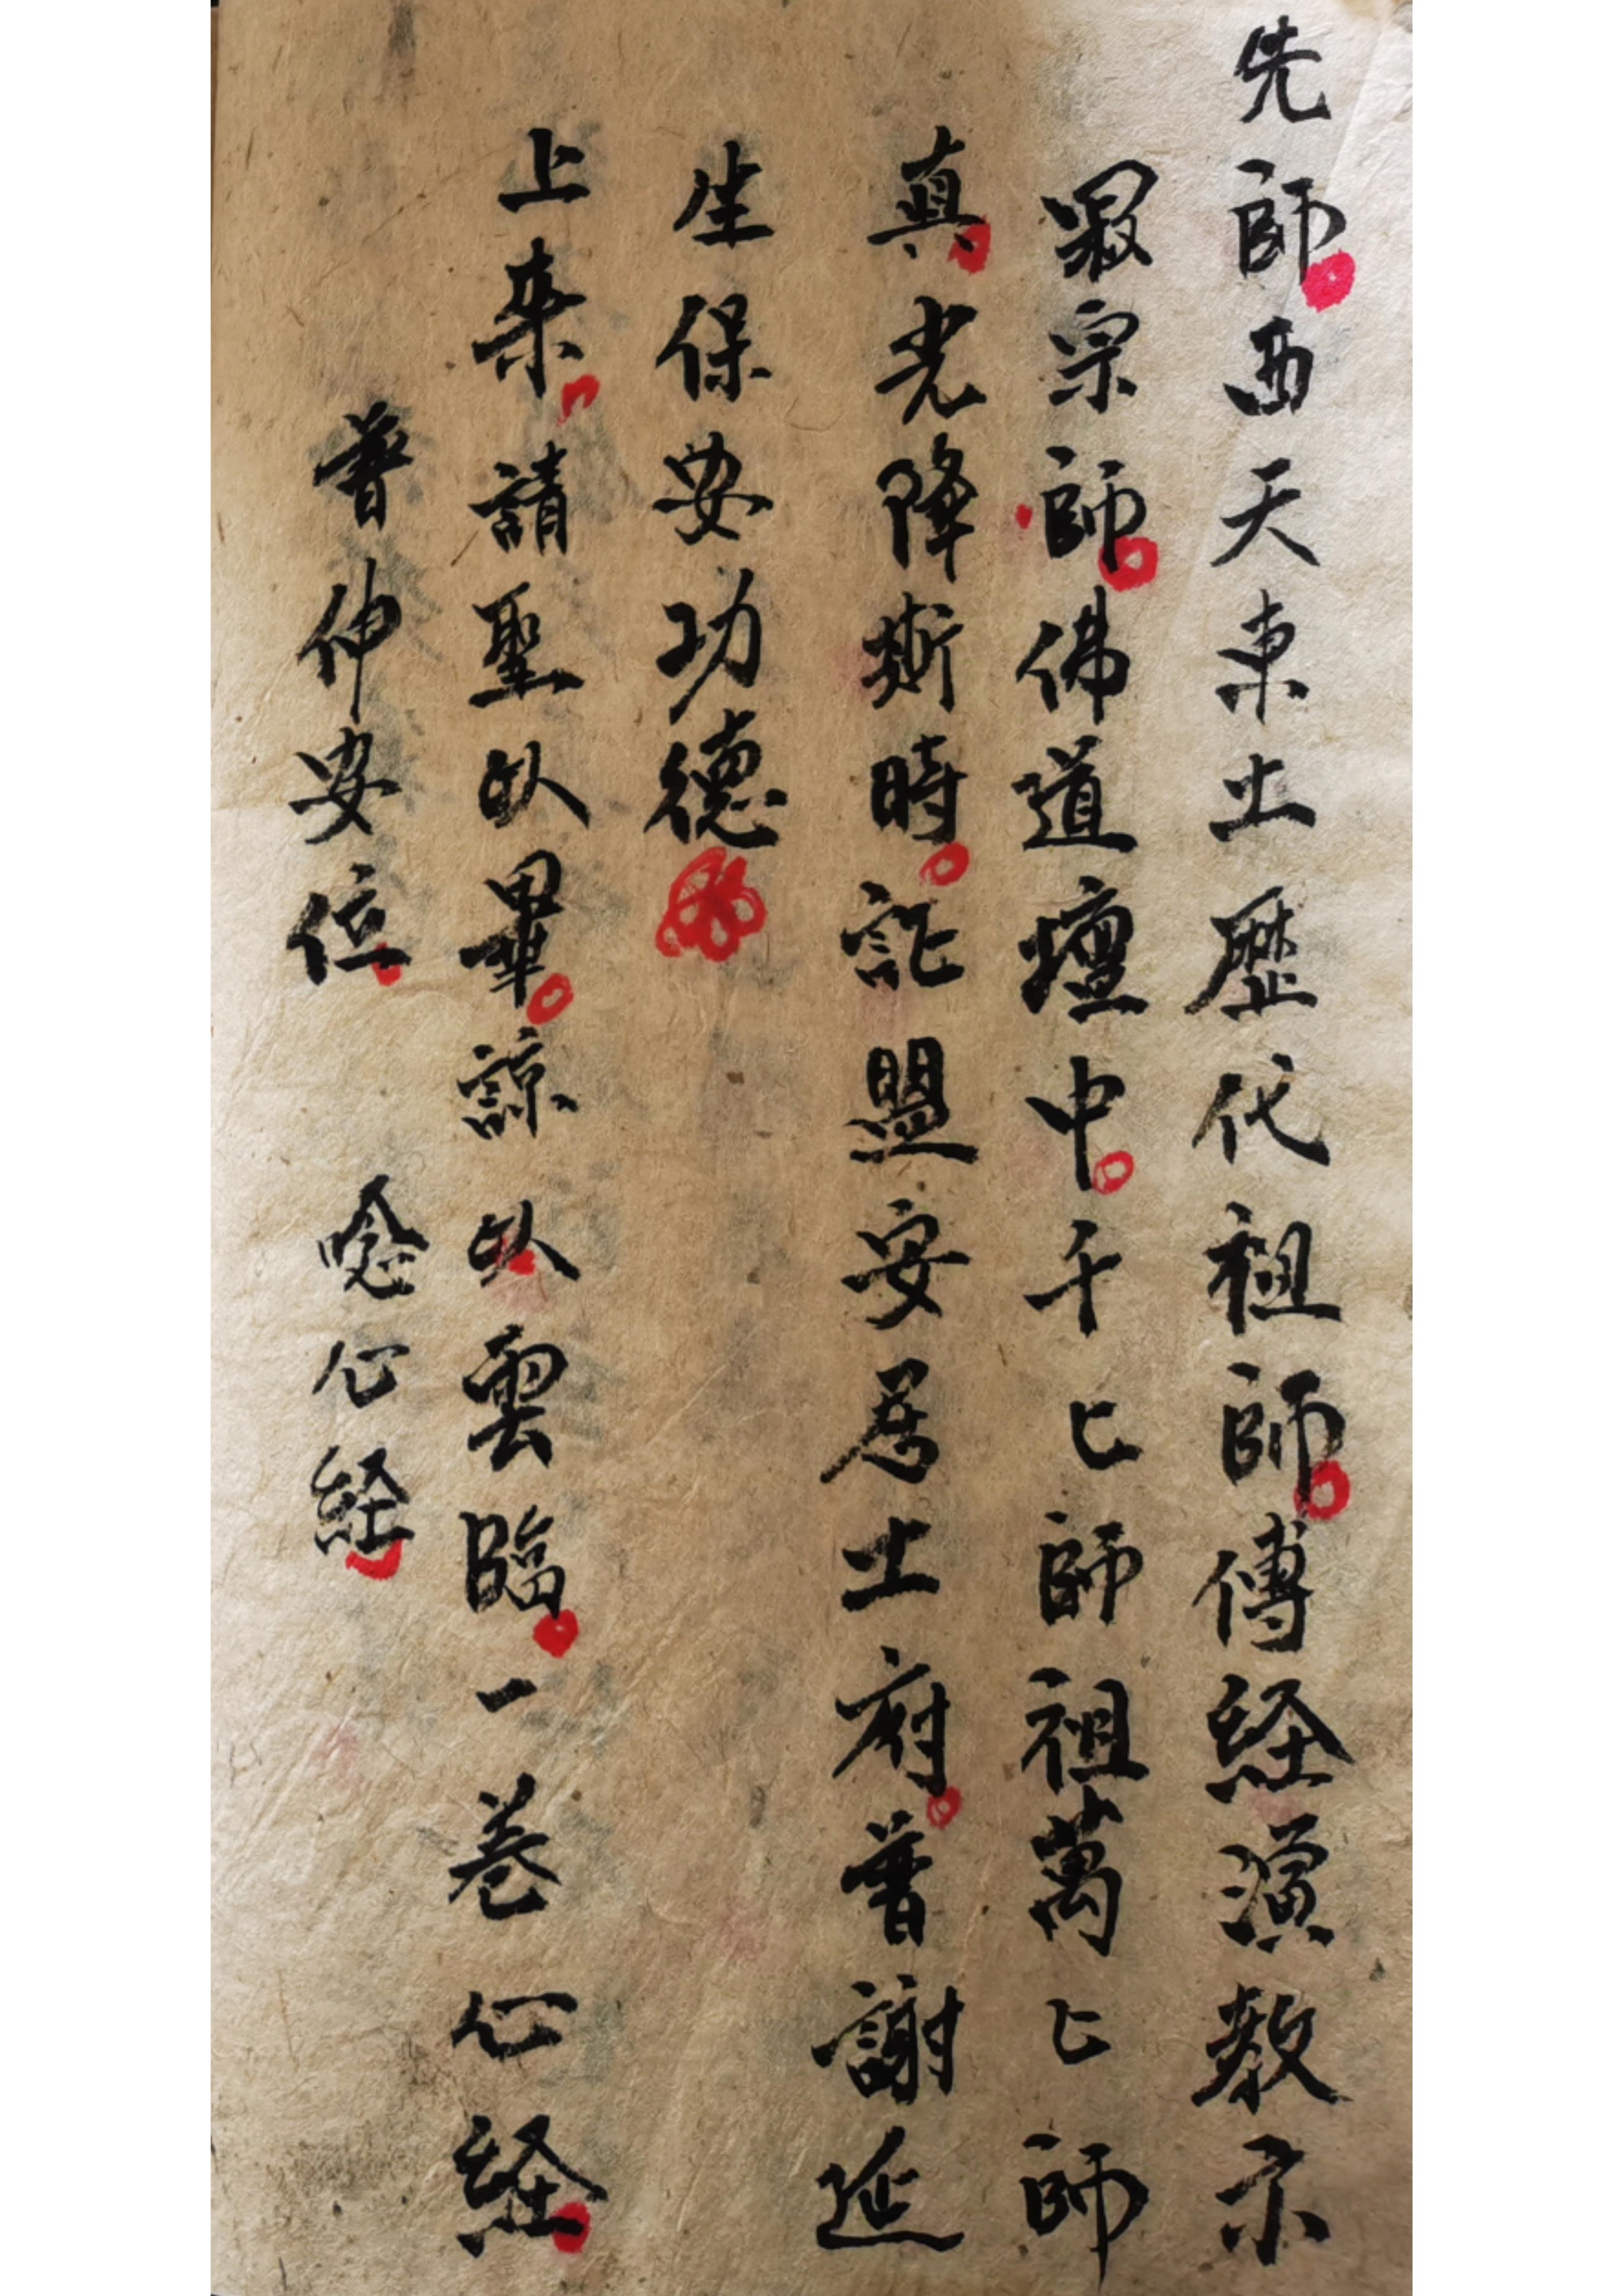 先師西天東土歷代祖師傳経演教示
冣宗師佛道壇中千匕師祖萬匕師
真光降斯時証盟安居土府普謝延
生保安功德
上來請聖以畢諒以雲臨一卷心経
普伸安位 唸心経